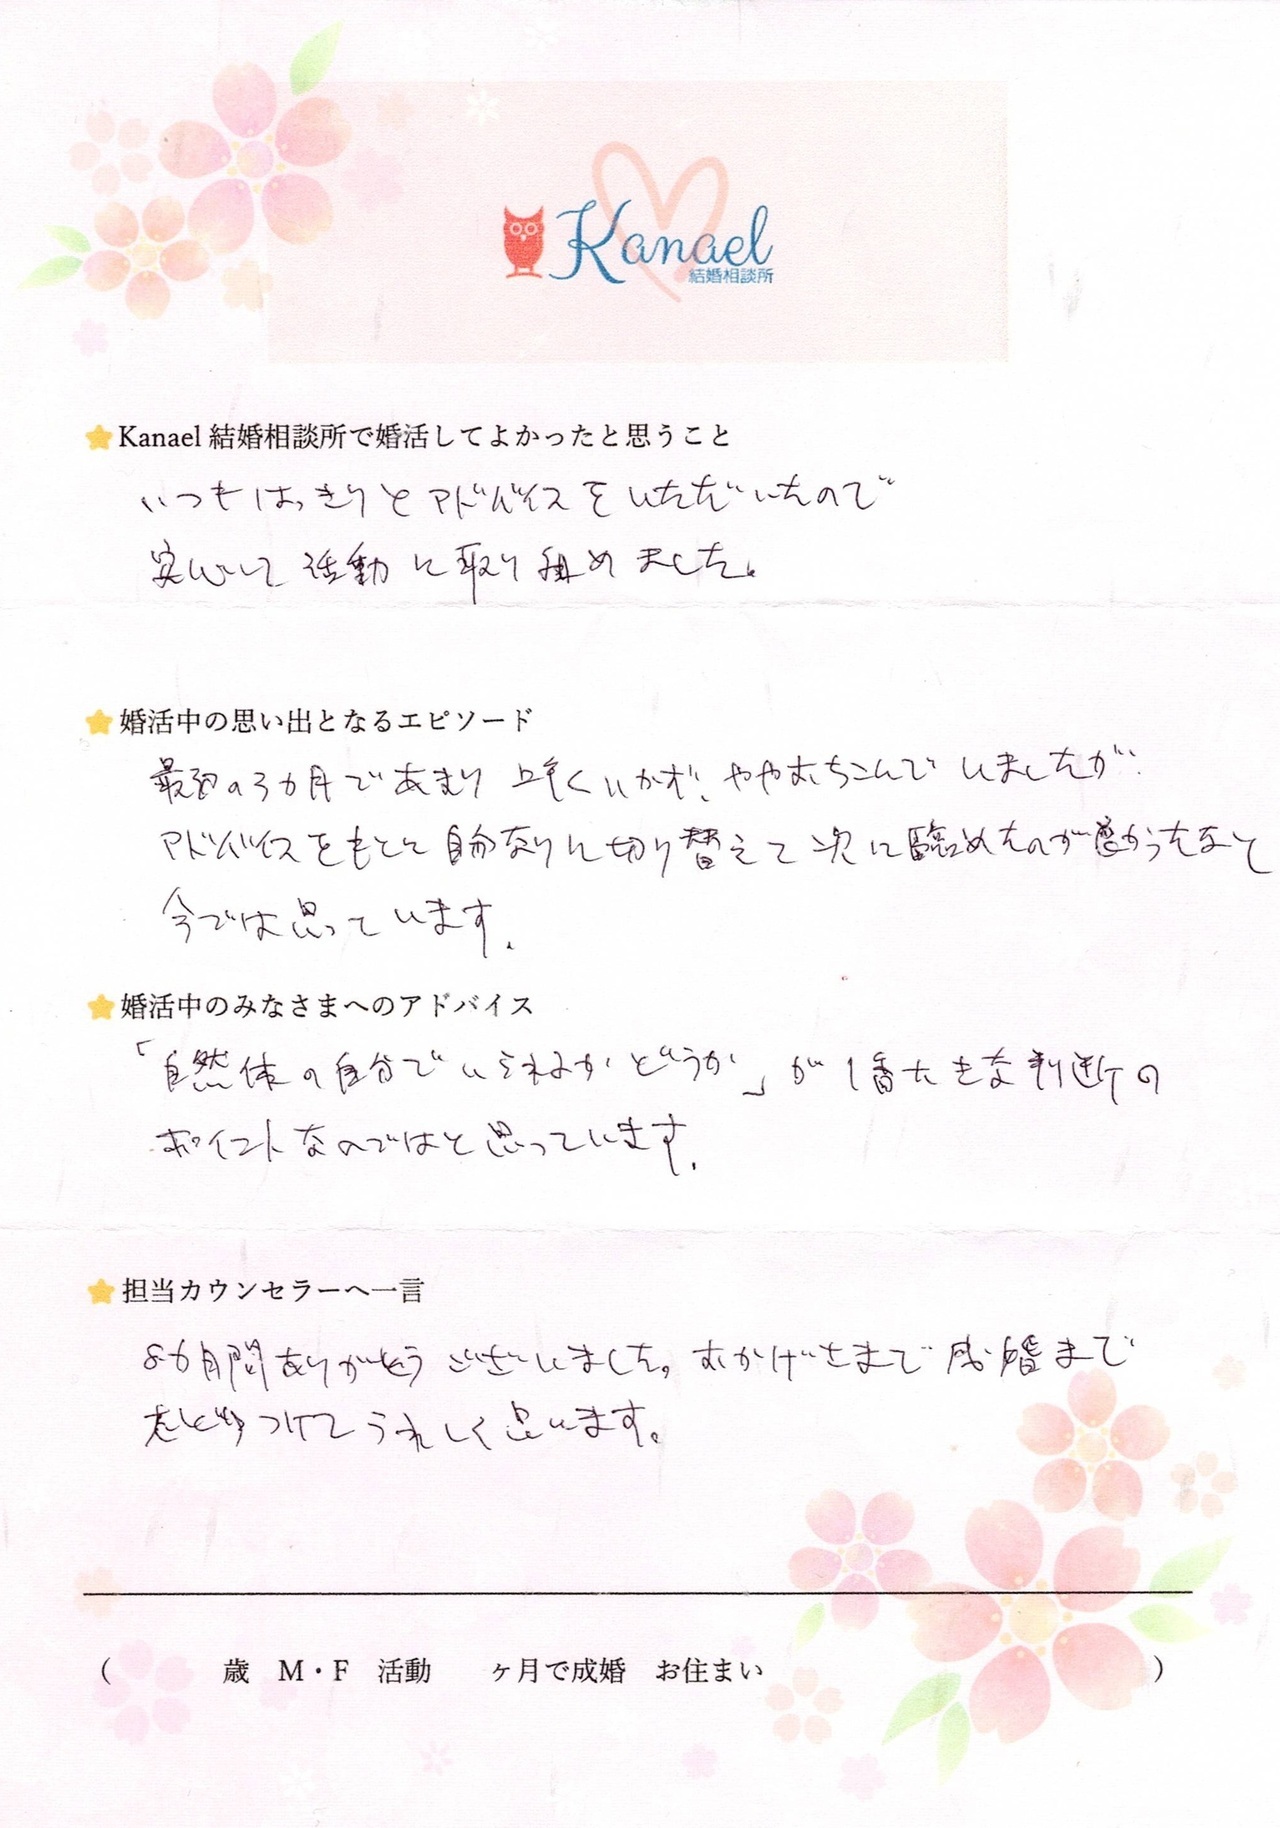 Kanael
結婚相談所
Kanael 結婚相談所で婚活してよかったと思うこと
いつもはっきりとアドバイスをいただいたので
安心して活動に取り組めました。
婚活中の思い出となるエピソード
最初の3カ月であまり上手くいかず、ややおちこんでいましたが
アドバイスをもとに自分なりに切り替えて次に臨めたのが良かったなと
今では思っています。
婚活中のみなさまへのアドバイス
「自然体の自分でいられるかどうか」が1番大きな判断の
ポイントなのではと思っています。
担当カウンセラーへ一言
8カ月間ありがとうございました。おかげさまで成婚まで
たどりつけてうれしく思います。
( 歳 M・F 活動 ヶ月で成婚 お住まい )